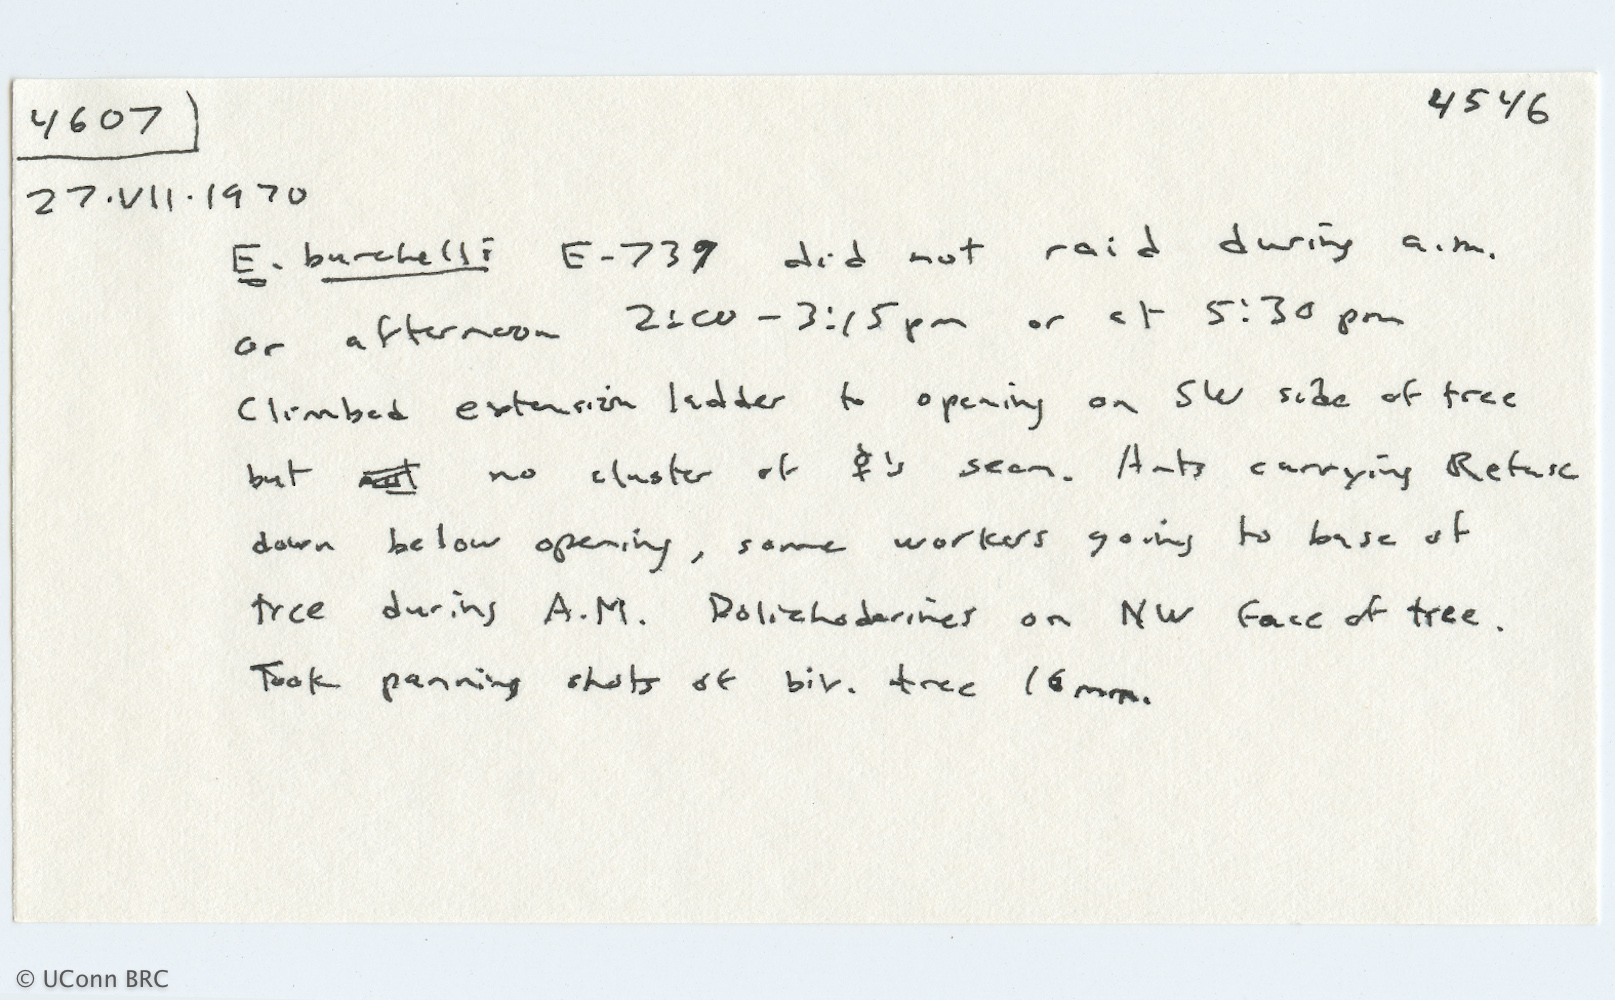 4607
4546
27.VII.1970
E. burchelli E-739 did not raid during a.m.
or afternoon 2:00 - 3:15 pm or at 5:30 pm
Climbed extension ladder to opening on SW side of tree
but no cluster of ☿'s seen. Ants carrying Refuse
down below opening, some workers going to base of
tree during A.M. Dolichoderines on NW face of tree.
Took panning shots of biv. tree 16mm.
© UConn BRC